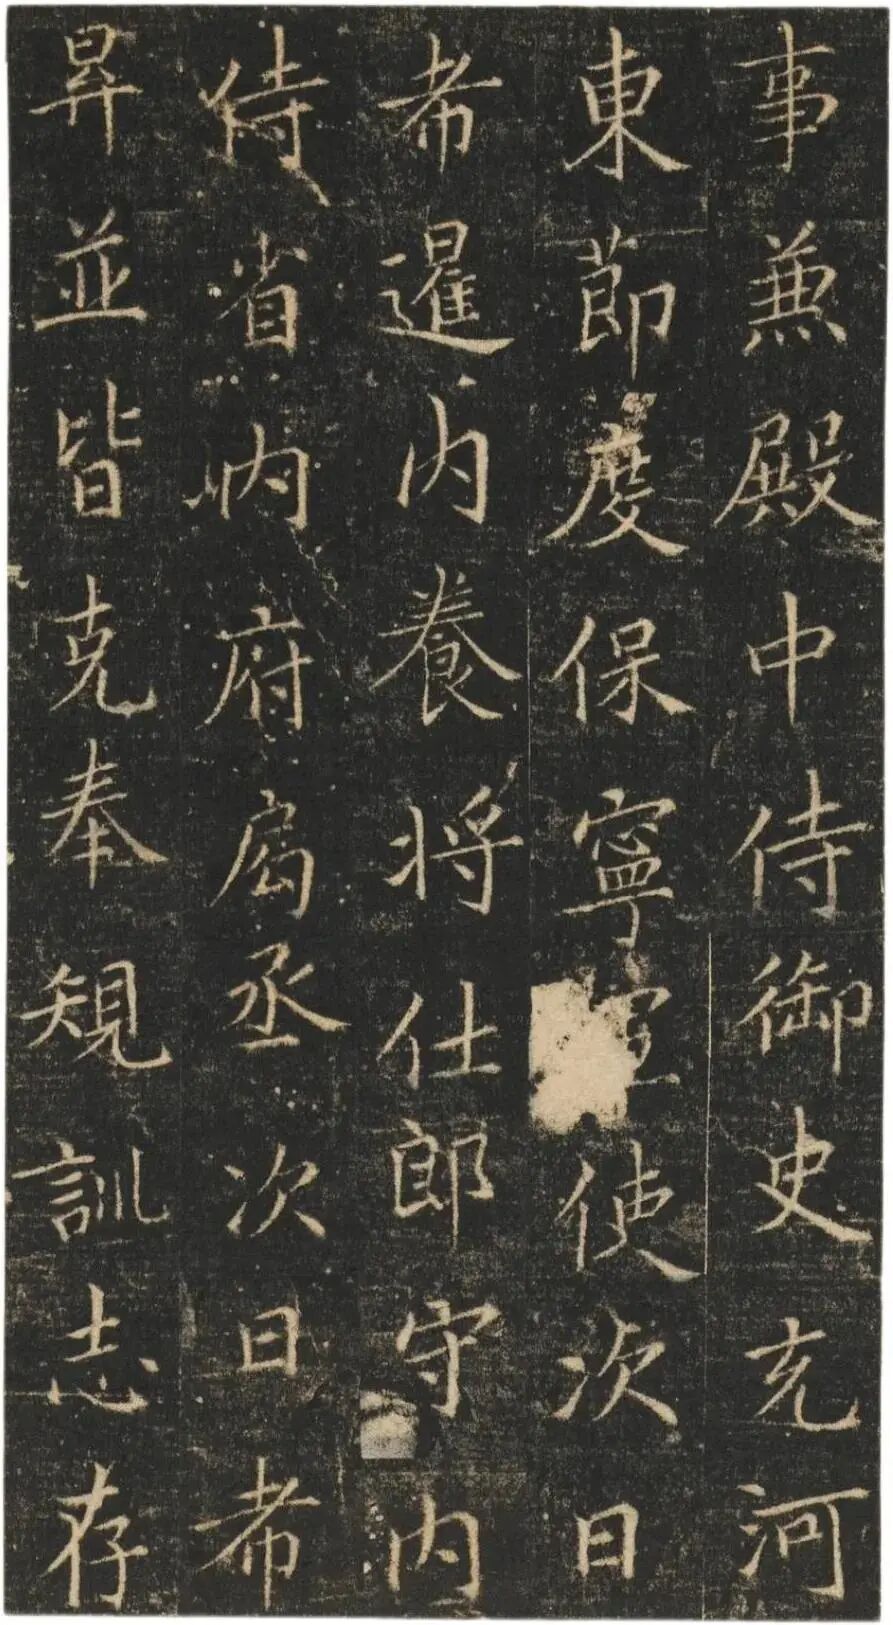 事兼殿中侍御史充河
東節度保寧使次曰
希暹内養将仕郎守内
侍省内府局丞次曰希
昇並皆克奉䂓訓志存